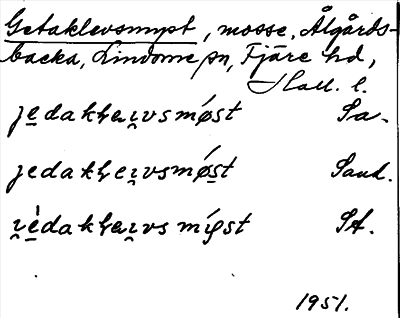 Getaklevsmyst, mosse, Älgårds-
backa, Lindome sn, Fjäre hd,
Hall. l.
jedaklɛi̯vsmǿst Sa.
jedakleɪ̯vsmǿst Sand.
ɪ̯èdaklɛɪ̯vsmíøst St.
1951.